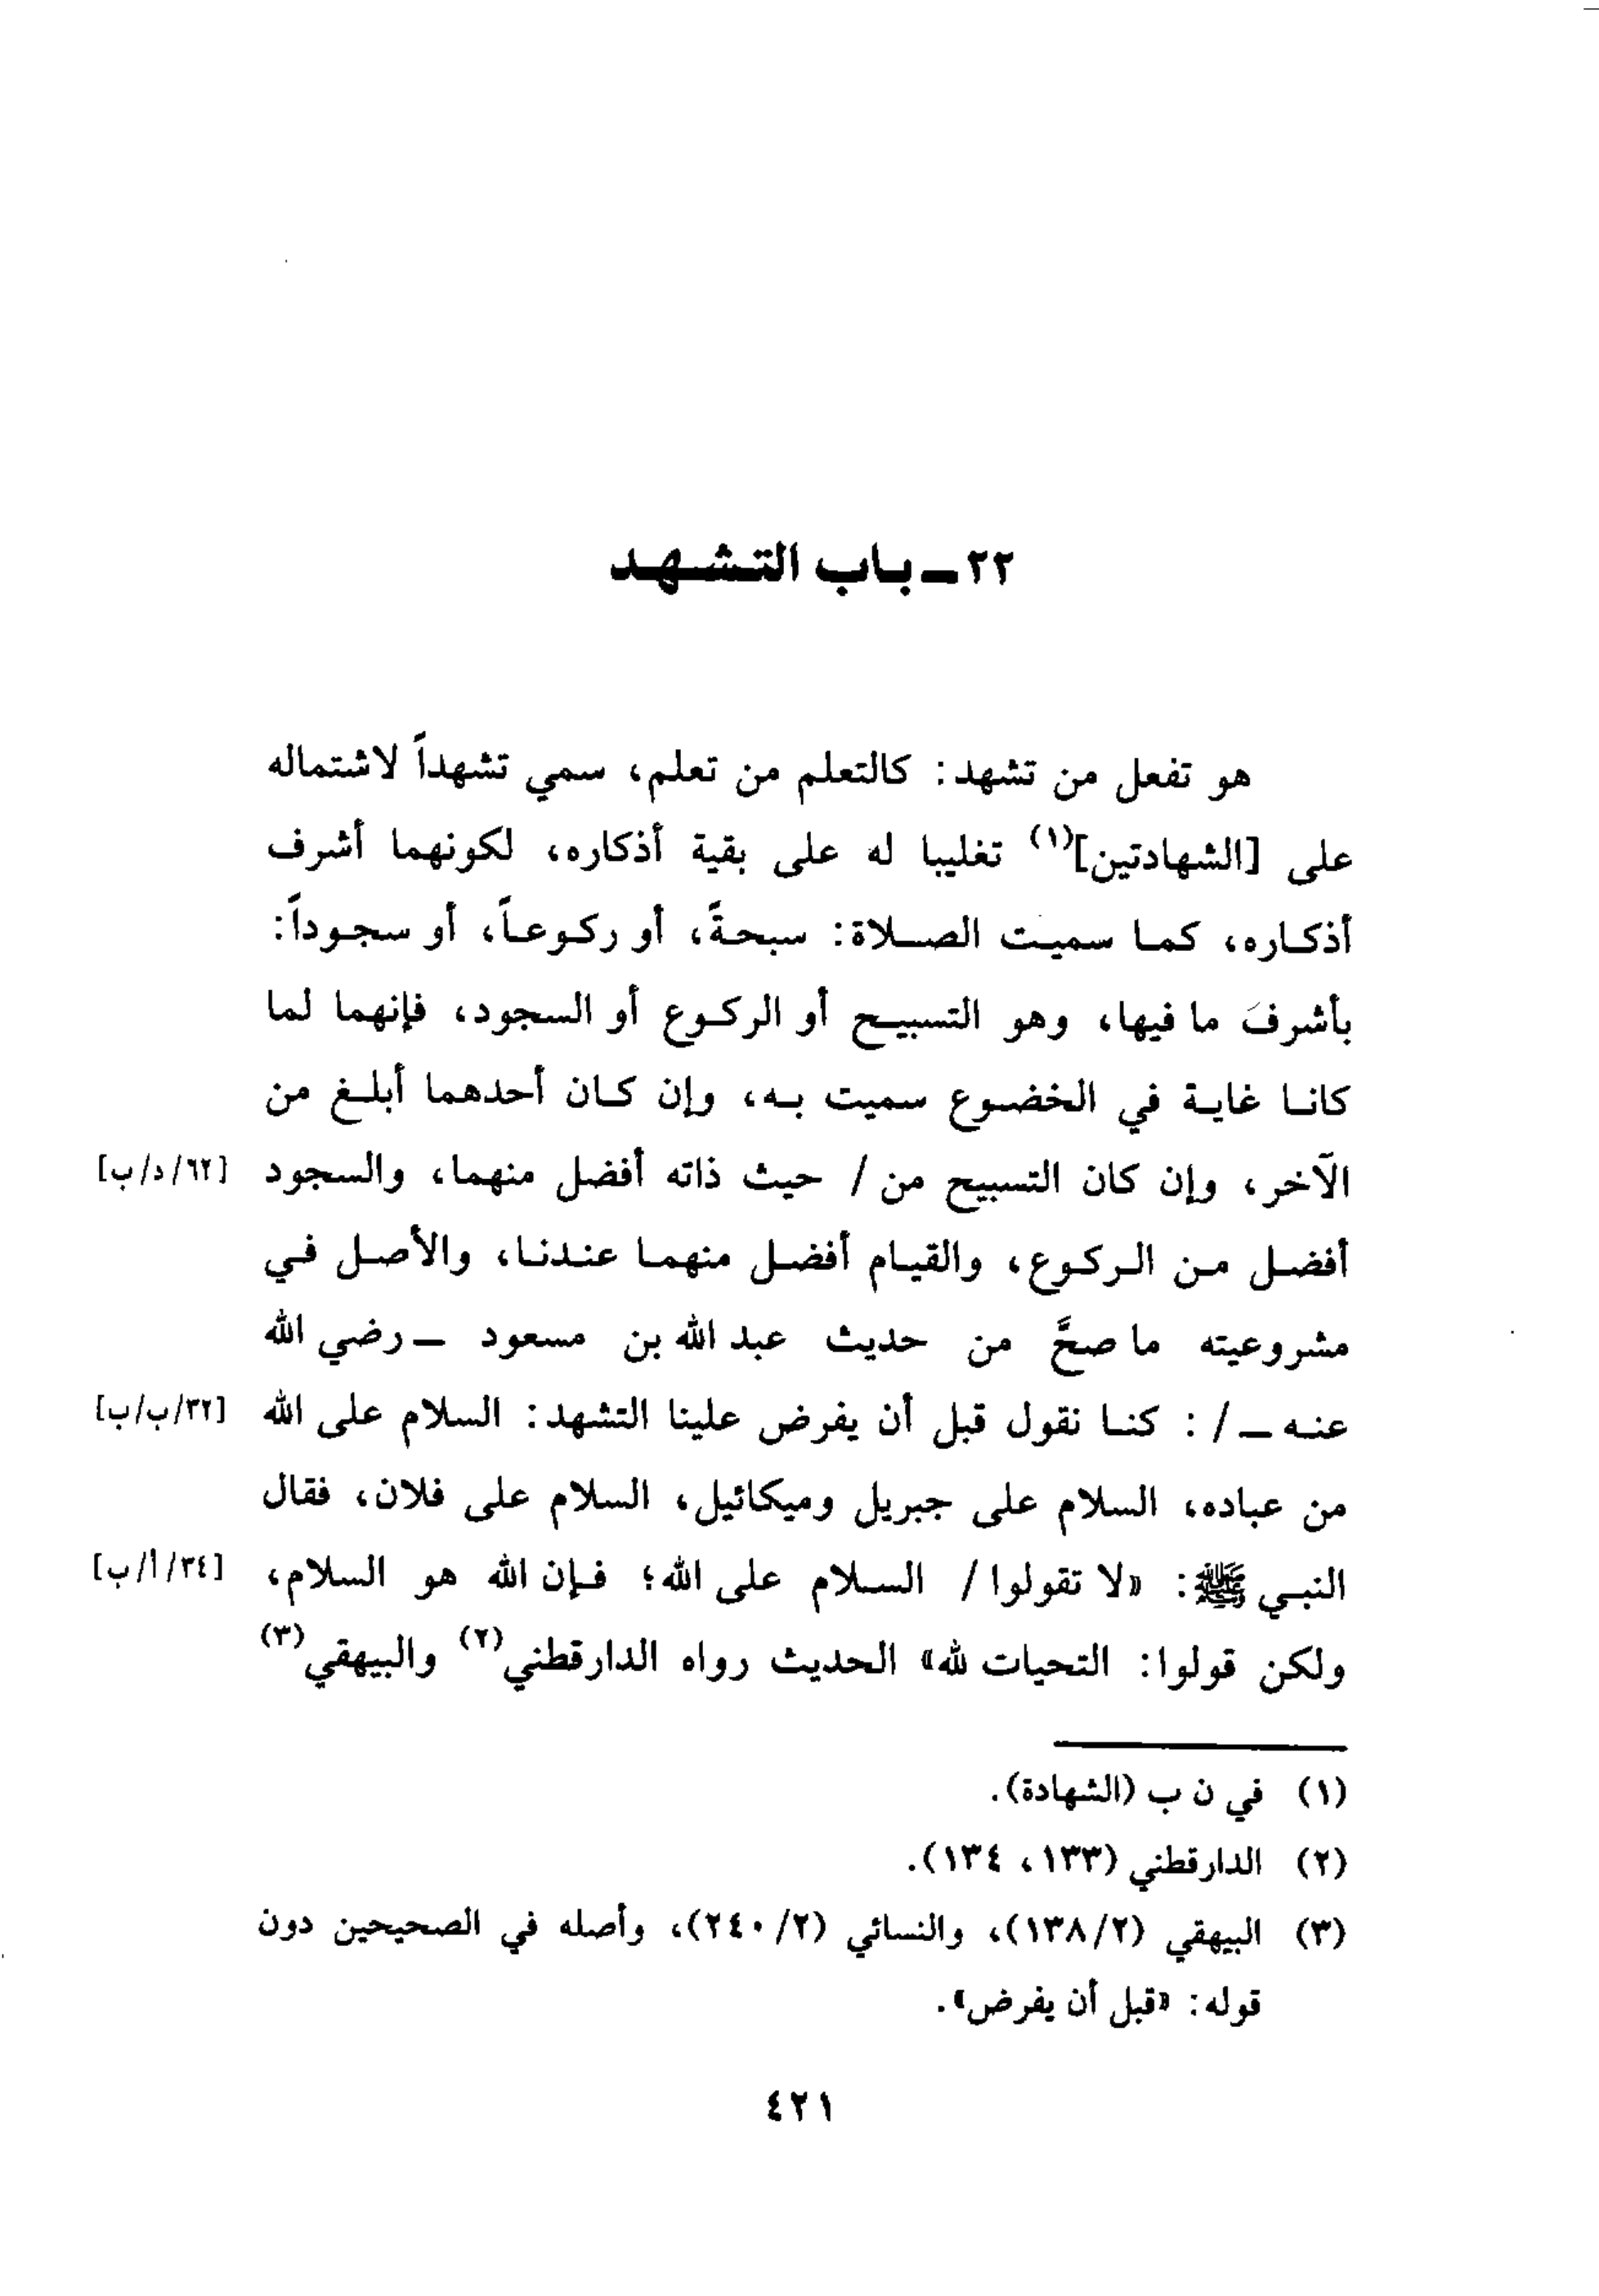 ٢٢ ـ باب التشهد
هو تفعل من تشهد: كالتعلم من تعلم، سمي تشهداً لاشتماله
على [الشهادتين](١) تغليبا له على بقية أذكاره، لكونهما أشرف
أذكاره، كما سميت الصلاة: سبحةً، أو ركوعاً، أو سجوداً:
بأشرفَ ما فيها، وهو التسبيح أو الركوع أو السجود، فإنهما لما
كانا غاية في الخضوع سميت به، وإن كان أحدهما أبلغ من
الآخر، وإن كان التسبيح من / حيث ذاته أفضل منهما، والسجود [٦٢/د/ب]
أفضل من الركوع، والقيام أفضل منهما عندنا، والأصل في
مشروعيته ما صحَّ من حديث عبد الله بن مسعود ـ رضي الله
عنه ـ / : كنا نقول قبل أن يفرض علينا التشهد: السلام على الله [٣٢/ب/ب]
من عباده، السلام على جبريل وميكائيل، السلام على فلان، فقال
النبي ﷺ: «لا تقولوا / السلام على الله؛ فإن الله هو السلام، [٣٤/أ/ب]
ولكن قولوا: التحيات لله» الحديث رواه الدارقطني(٢) والبيهقي(٣)
(١) في ن ب (الشهادة).
(٢) الدارقطني (١٣٣، ١٣٤).
(٣) البيهقي (١٣٨/٢)، والنسائي (٢٤٠/٢)، وأصله في الصحيحين دون
قوله: «قبل أن يفرض».
٤٢١